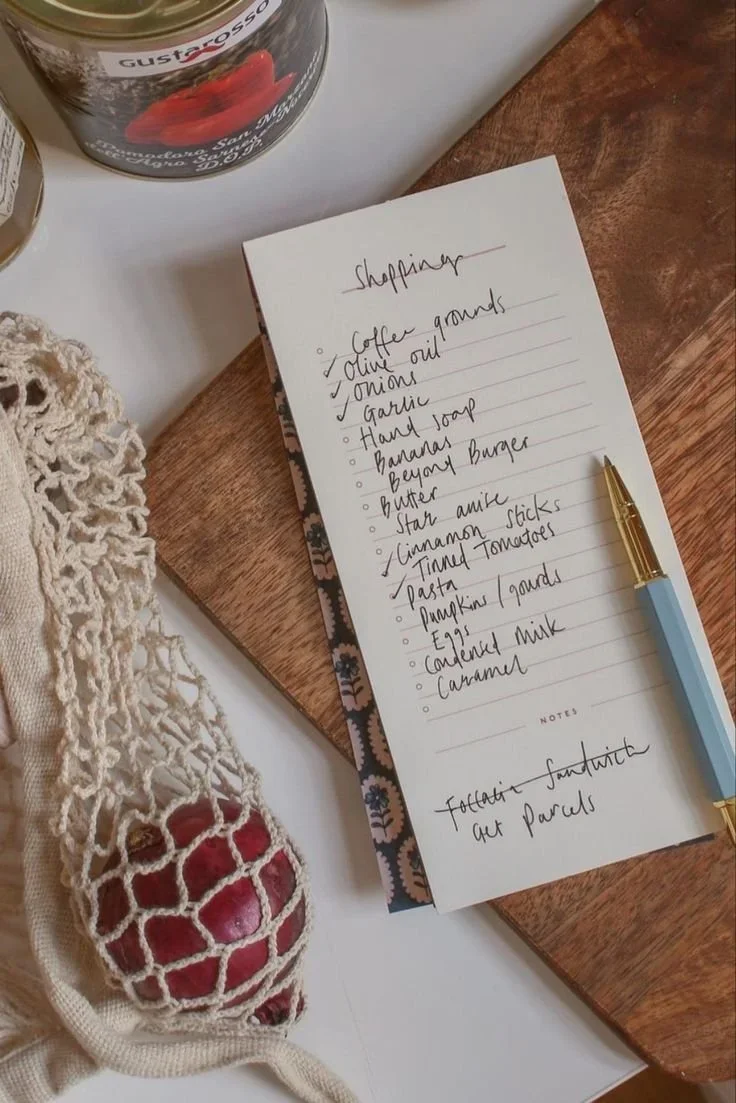 GUSTAROSSO
Pomodoro San Marzano
dell'Agro Sarnese-Nocerino
D.O.P.
Shopping
Coffee grounds
✓ Olive oil
✓ Onions
✓ Garlic
Hand soap
Bananas
Beyond Burger
Butter
Star anise
Cinnamon Sticks
✓ Tinned Tomatoes
✓ Pasta
Pumpkins / gourds
Eggs
Condensed Milk
Caramel
NOTES
Foccacia Sandwich
Get Parcels